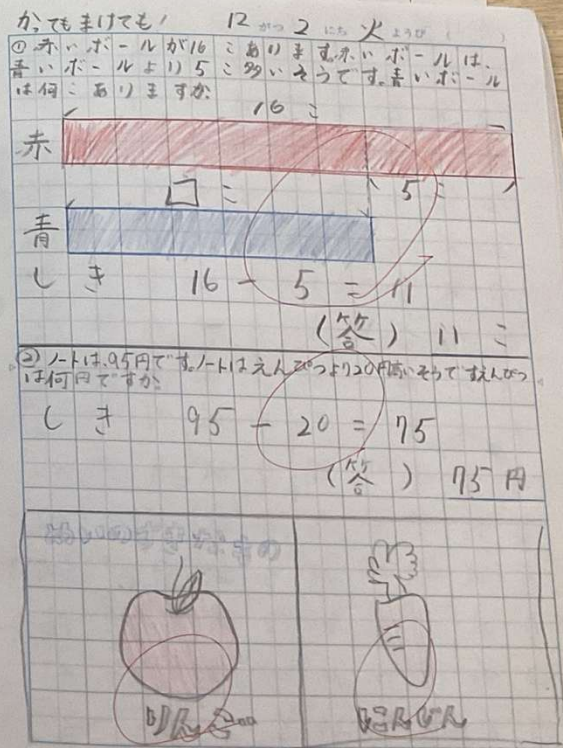 かってもまけても! 12がつ2にち火ようび( )
①赤いボールが16こあります。赤いボールは、
青いボールより5こ多いそうです。青いボール
は何こありますか。
16こ
赤
□こ 5こ
青
しき 16-5=11
(答) 11こ
②ノートは、95円です。ノートはえんぴつより20円高いそうです。えんぴつ
は何円ですか。
しき 95-20=75
(答) 75円
りんご
にんじん